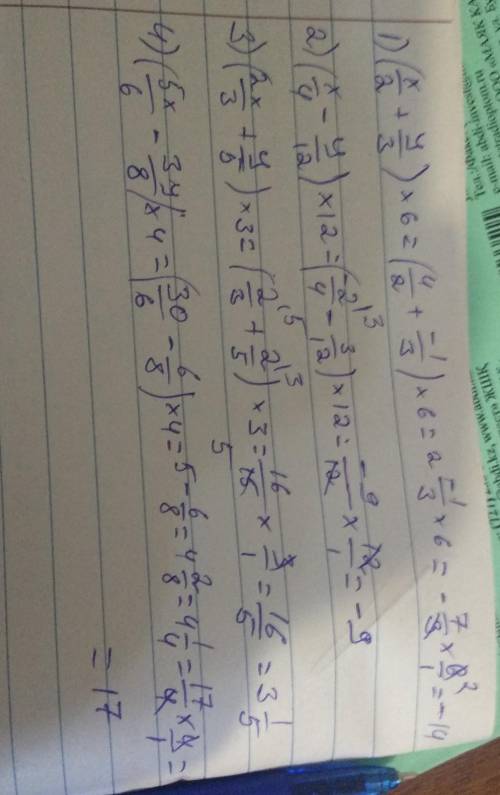 1) (x/2 + y/3) × 6 = (4/2 + -1/3) × 6 = 2 -1/3 × 6 = - 7/3 × 6/1 = -14
2) (x/4 - y/12) × 12 = (-2/4 - 3/12) × 12 = -9/12 × 12/1 = -9
3) (2x/3 + y/5) × 3 = (2/3 + 2/5) × 3 = 16/15 × 3/1 = 16/5 = 3 1/5
4) (5x/6 - 3y/8) × 4 = (30/6 - 6/8) × 4 = 5 - 6/8 = 4 2/8 = 4 1/4 = 17/4 × 4/1 =
= 17